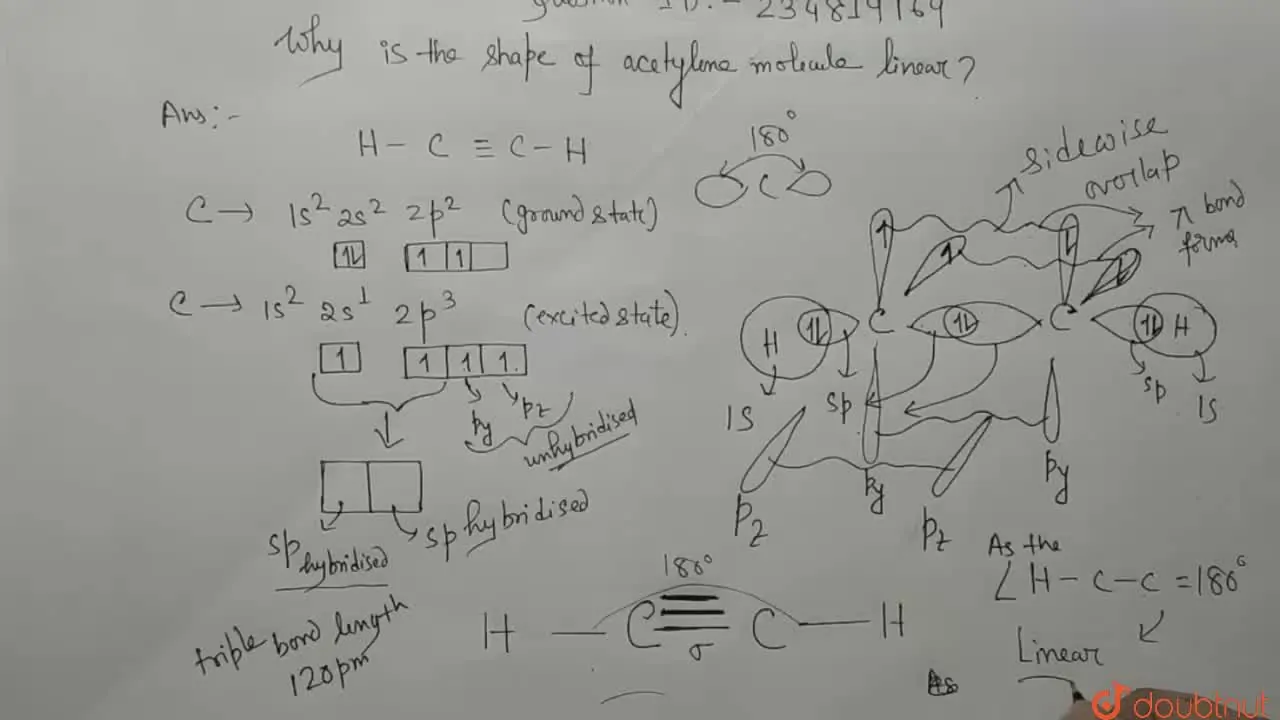 Question ID:- 234819164
Why is the shape of acetylene molecule linear?
Ans:-
H - C ≡ C - H
C → 1s² 2s² 2p² (ground state)
1⇂ 1 1
C → 1s² 2s¹ 2p³ (excited state).
1 1 1 1
py pz
unhybridised
sp hybridised
sp hybridised
triple bond length
120pm
180°
C
sidewise
overlap
π bond
forms
1 1⇂ 1
H 1⇂ C 1⇂ C 1⇂ H
1s sp sp 1s
pz py pz py
180°
H — C ≡ C — H
σ
As the
∠ H - C - C = 180°
Linear
As
doubtnut